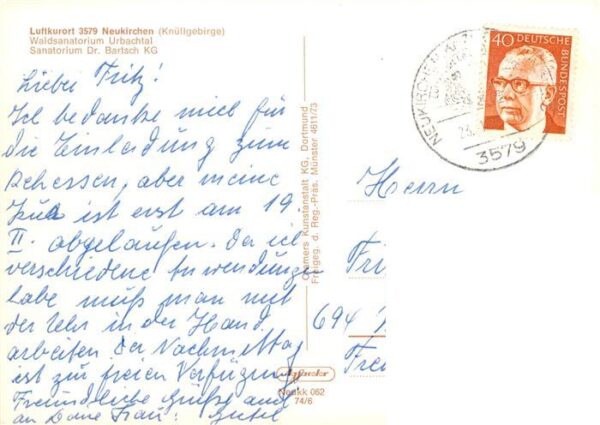 Luftkurort 3579 Neukirchen (Knüllgebirge)
Waldsanatorium Urbachtal
Sanatorium Dr. Bartsch KG
Lieber Fritz!
Ich bedanke mich für
die Einladung zum
aber meine
Kur ist erst am 19.
II. abgelaufen. Da ich
verschiedene Anwendungen
habe muß man mit
der Uhr in der Hand
arbeiten. Der Nachmittag
ist zur freien Verfügung
Freundliche Grüße auch
an Deine Frau:
Cramers Kunstanstalt KG, Dortmund
Freigeg. d. Reg.-Präs. Münster 4611/73
Neukk 062
74/6
40 DEUTSCHE
BUNDESPOST
NEUKIRCHEN
3579
Herrn
Fri
694
Fre